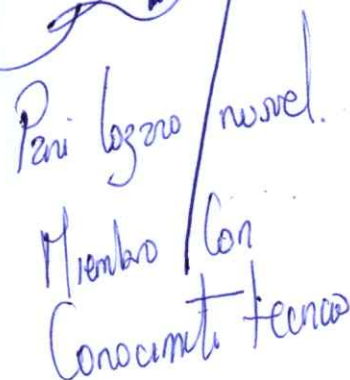 Pani Lozano nosvel.
Miembro Con
Conocimti tecnico